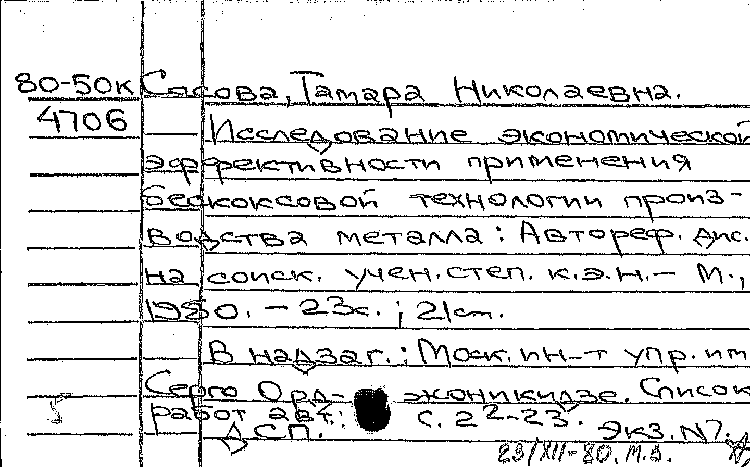 80-50к Сясова, Тамара Николаевна.
4706 Исследование экономической
эффективности применения
бескоксовой технологии произ-
водства металла: Автореф. дис.
на соиск. учен. степ. к.э.н. - М.,
1980. - 23с.; 21см.
В надзаг.: Моск. ин-т упр. им
Серго Орд- жоникидзе. Список
работ авт.: с. 22-23.
ДСП. Экз. N7.
23/XII-80. М.З.